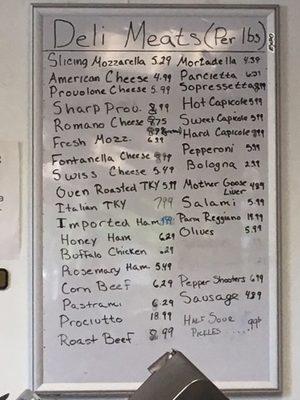 Deli Meats (Per lbs)
Slicing Mozzarella 5.29
American Cheese 4.99
Provolone Cheese 5.99
Sharp Prov. 8.99
Romano Cheese 8.75
Fresh Mozz. 6.99
Fontanella Cheese 8.99
Swiss Cheese 5.49
Oven Roasted TKY 5.99
Italian TKY 7.99
Imported Ham
Honey Ham 6.29
Buffalo Chicken 6.29
Rosemary Ham. 5.49
Corn Beef 6.29
Pastrami 6.29
Prociutto 18.99
Roast Beef 8.99
Mortadella 4.39
Pancietta
Sopressetta
Hot Capicole
Sweet Capicole
Hard Capicole
Pepperoni 5.99
Bologna 2.99
Mother Goose
Liver 4.89
Salami 5.99
Parm Reggiano 18.99
Olives 5.99
Pepper Shooters 6.99
Sausage 4.89
Half Sour
Pickles .....99¢